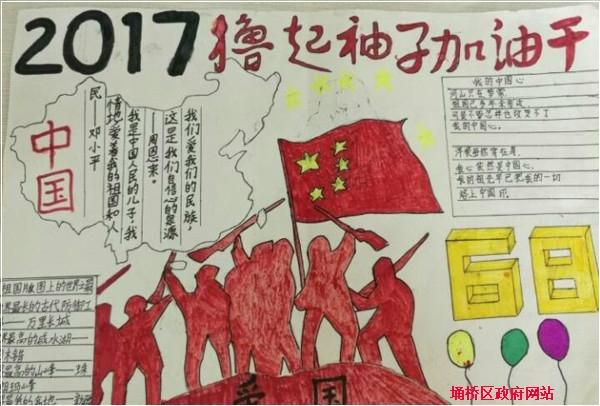 2017撸起袖子加油干
我们爱我们的民族,
这是我们自信心的泉源
——周恩来。
我是中国人民的儿子,我
情地爱着我的祖国和人
民——邓小平
中国
我的中国心
河山只在梦萦
祖国已多年未亲近
可是不管怎样也改变不了
我的中国心。
洋装虽然穿在身,
我心依然是中国心,
我的祖先早已把我的一切
烙上中国印。
68
祖国版图上的世界之最
最长的古代防御工
——万里长城
最高的咸水湖——
木错
最高的山峰——珠
朗玛峰
爱国
埇桥区政府网站